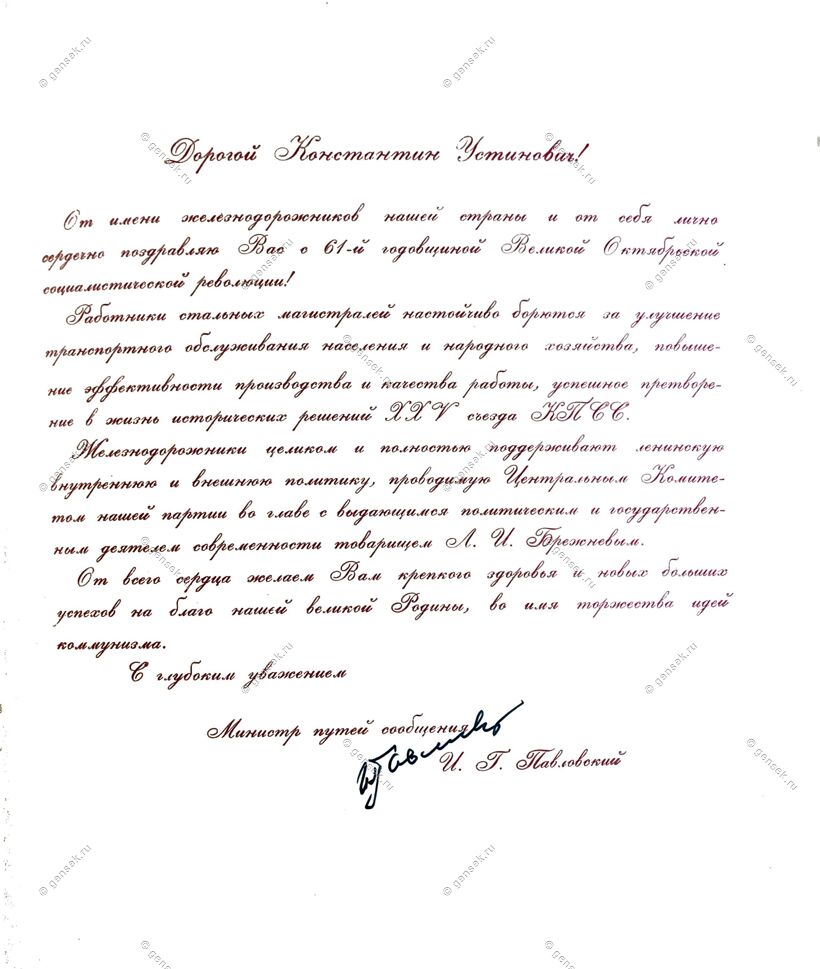 Дорогой Константин Устинович!
От имени железнодорожников нашей страны и от себя лично
сердечно поздравляю Вас с 61-й годовщиной Великой Октябрьской
социалистической революции!
Работники стальных магистралей настойчиво борются за улучшение
транспортного обслуживания населения и народного хозяйства, повыше-
ние эффективности производства и качества работы, успешное претворе-
ние в жизнь исторических решений XXV съезда КПСС.
Железнодорожники целиком и полностью поддерживают ленинскую
внутреннюю и внешнюю политику, проводимую Центральным Комите-
том нашей партии во главе с выдающимся политическим и государствен-
ным деятелем современности товарищем Л. И. Брежневым.
От всего сердца желаем Вам крепкого здоровья и новых больших
успехов на благо нашей великой Родины, во имя торжества идей
коммунизма.
С глубоким уважением
Министр путей сообщения
И. Г. Павловский
© gensek.ru